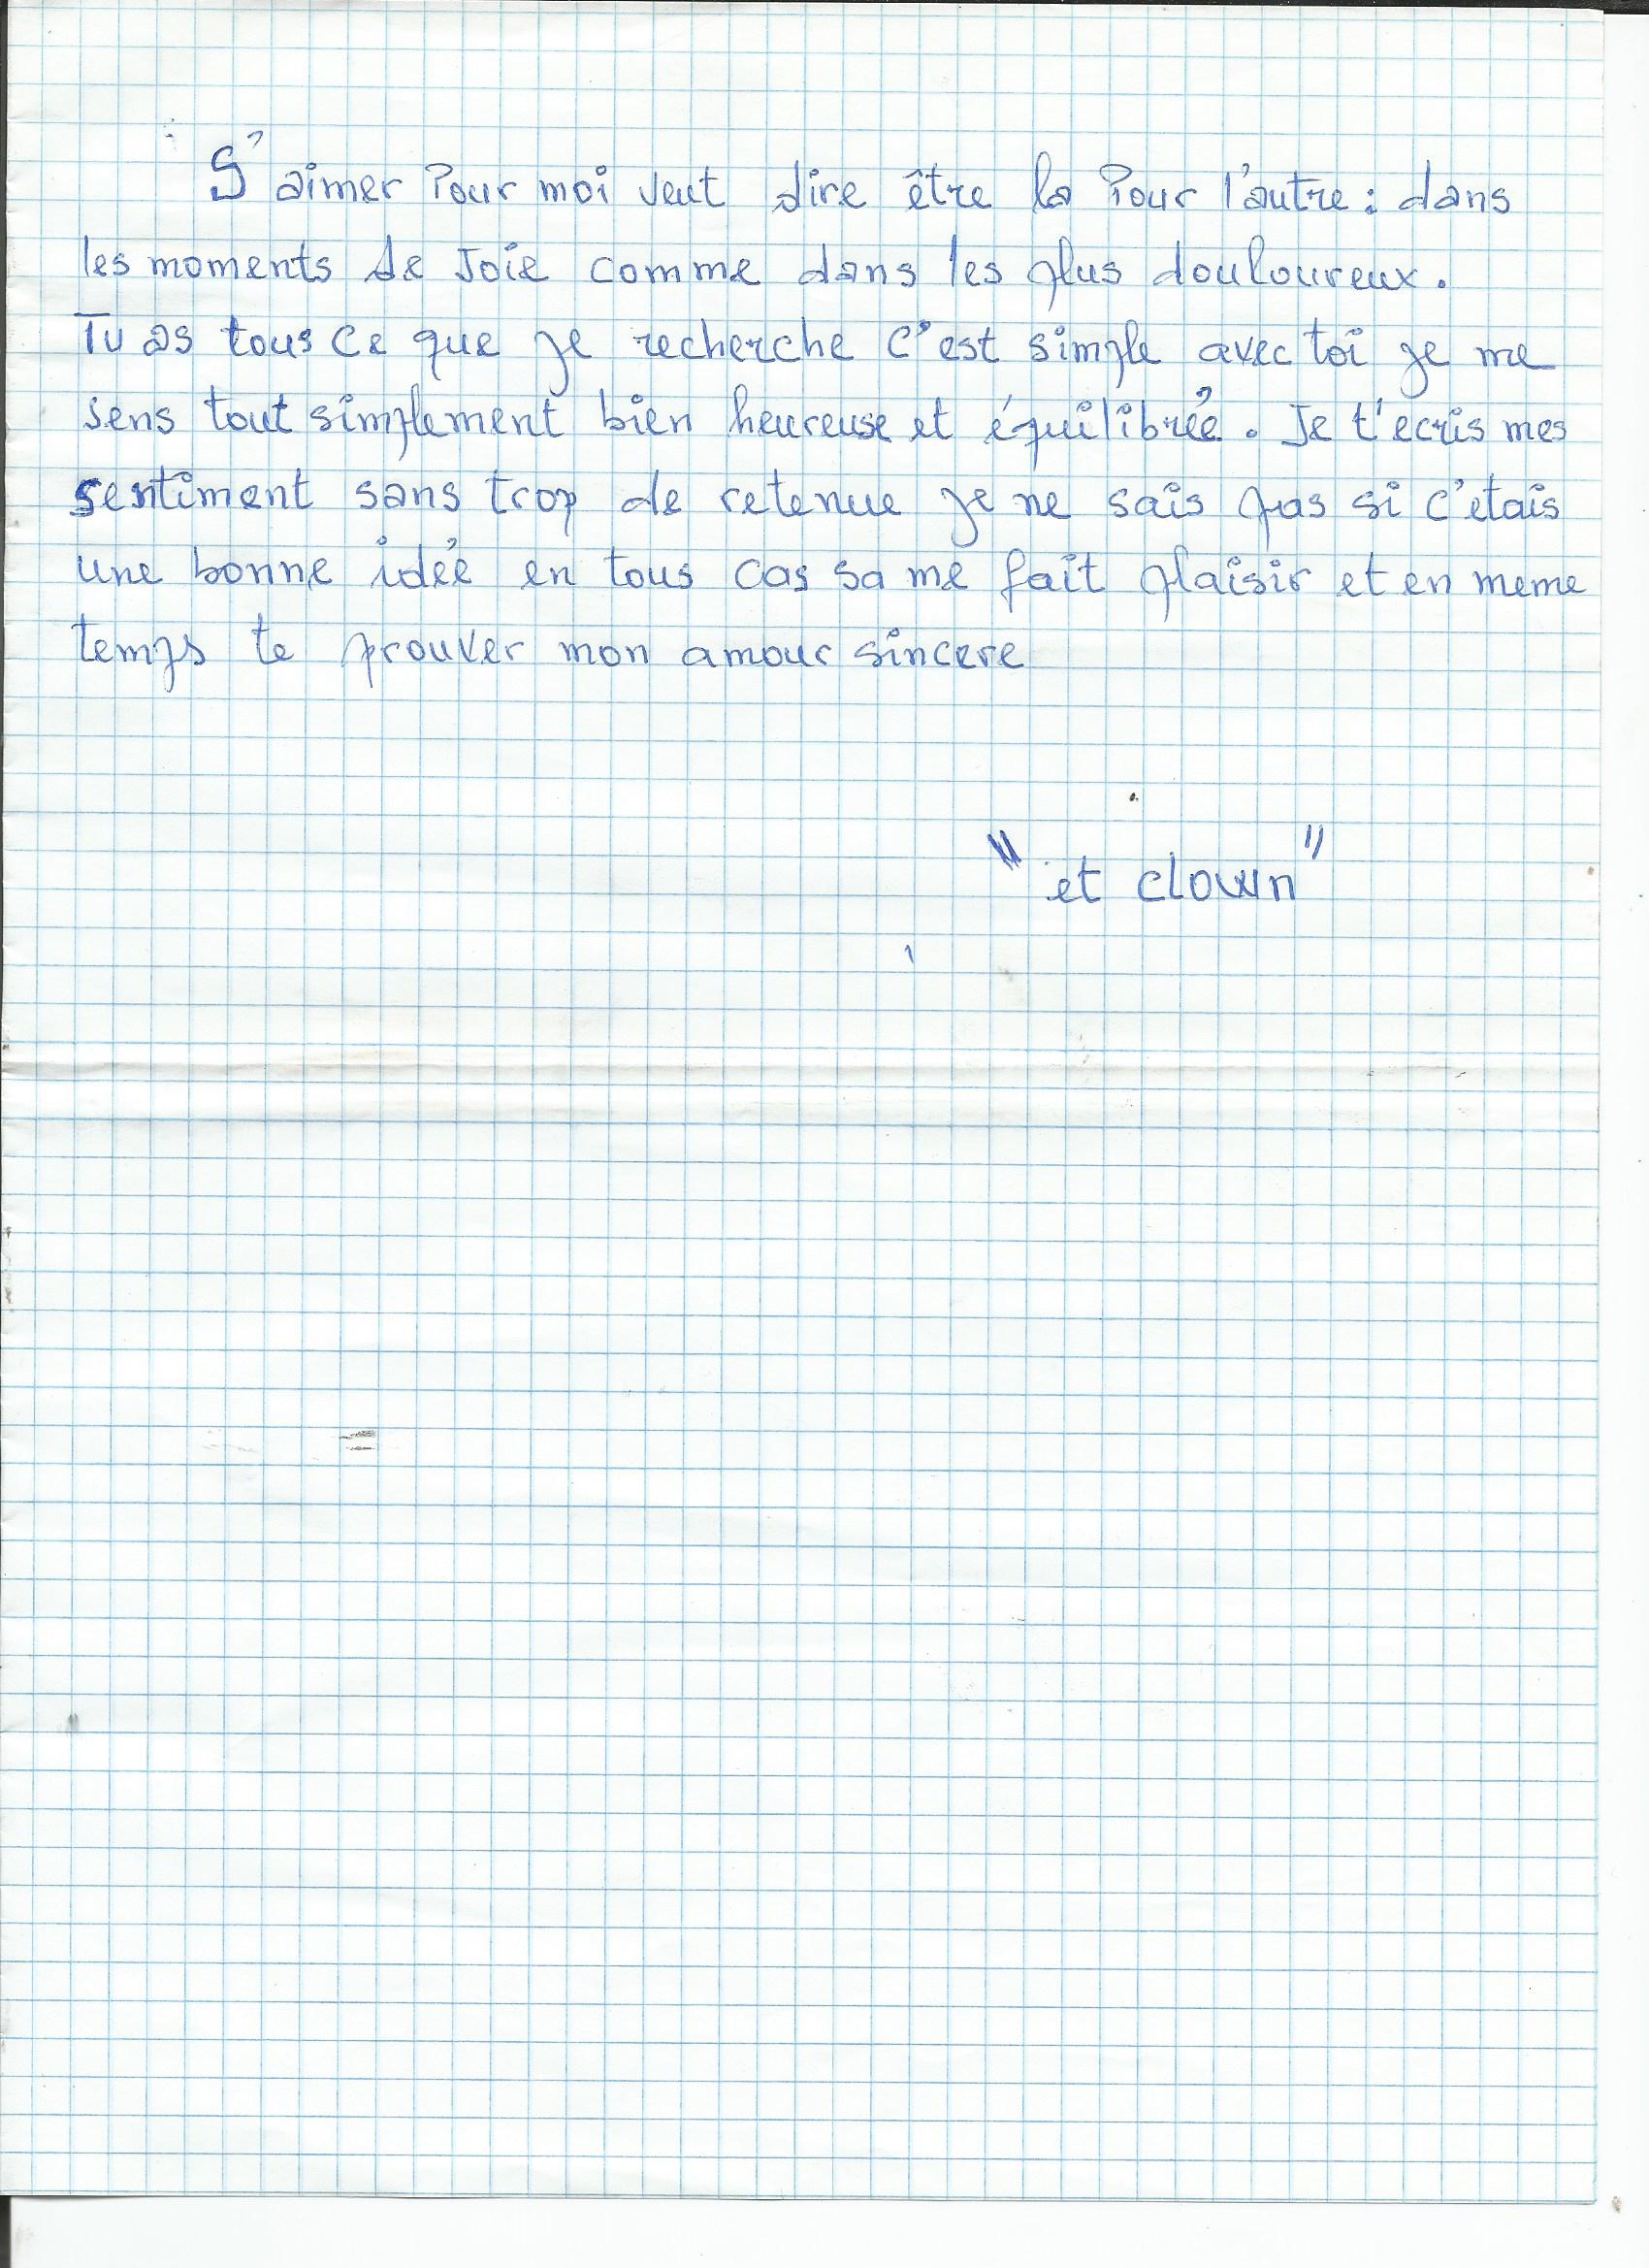 S'aimer Pour moi veut dire être la Pour l'autre : dans
les moments de Joie comme dans les plus douloureux.
Tu as tous ce que je recherche c'est simple avec toi je me
sens tout simplement bien heureuse et équilibrée. Je t'ecris mes
sentiment sans trop de retenue je ne sais pas si c'etais
une bonne idée en tous cas sa me fait plaisir et en meme
temps te prouver mon amour sincere
" et clown "